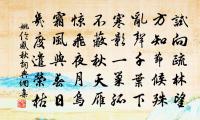 試向疏林望
方知節候殊
亂聲千葉下
寒影一巢孤
不蔽秋天雁
驚飛夜月烏
霜風與春日
幾度遣榮枯
姚伦感秋詞典網集